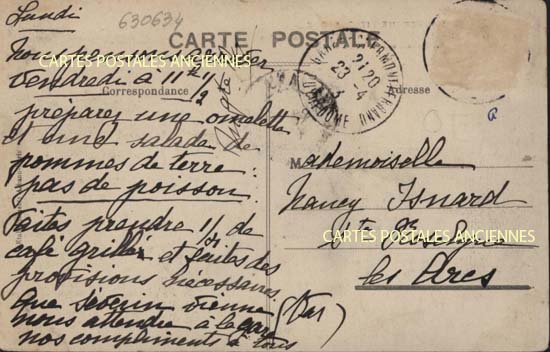 Lundi
630634
CARTE POSTALE
Correspondance
Adresse
Nous pensons arriver
Vendredi à 11h 1/2
préparez une omelette
et une salade de
pommes de terre.
pas de poisson.
Faites prendre 1/2 de
café grillé et faites des
provisions nécessaires.
Que Séverin vienne
nous attendre à la gare
nos compliments à tous
21 20
23 - 4
PUY-DE-DOME
Mademoiselle
Nancy Isnard
les Arcs
(Var)
CARTES POSTALES ANCIENNES
CARTES POSTALES ANCIENNES